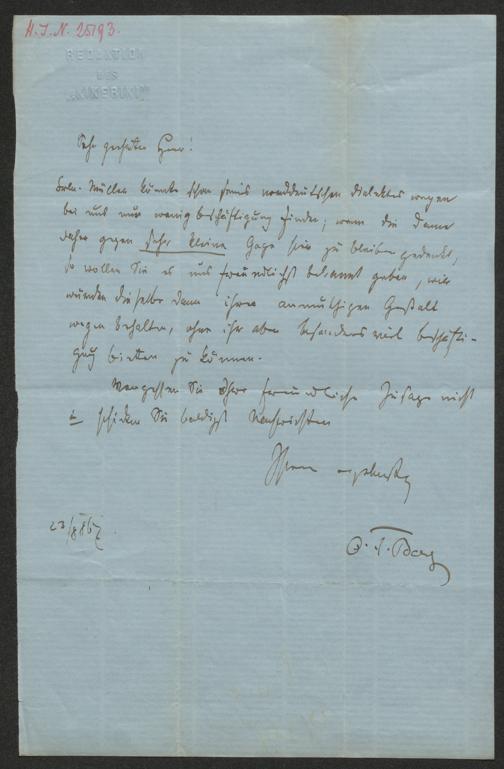 H.I.N. 25193.
REDAKTION
DES
„KIKERIKI"
Sehr geehrter Herr!
Frln. Müller könnte schon ihres norddeutschen Dialektes wegen
bei uns nur wenig Beschäftigung finden; wenn die Dame
daher gegen sehr kleine Gage hier zu bleiben gedenkt,
so wollen Sie es uns freundlichst bekannt geben, wir
würden dieselbe dann ihrer anmuthigen Gestalt
wegen behalten, ohne ihr aber besonders viel Beschäfti-
gung bieten zu können.
Vergessen Sie Ihre freundliche Zusage nicht
& schicken Sie baldigst Nachrichten
Ihrem ergebensten
O. F. Berg